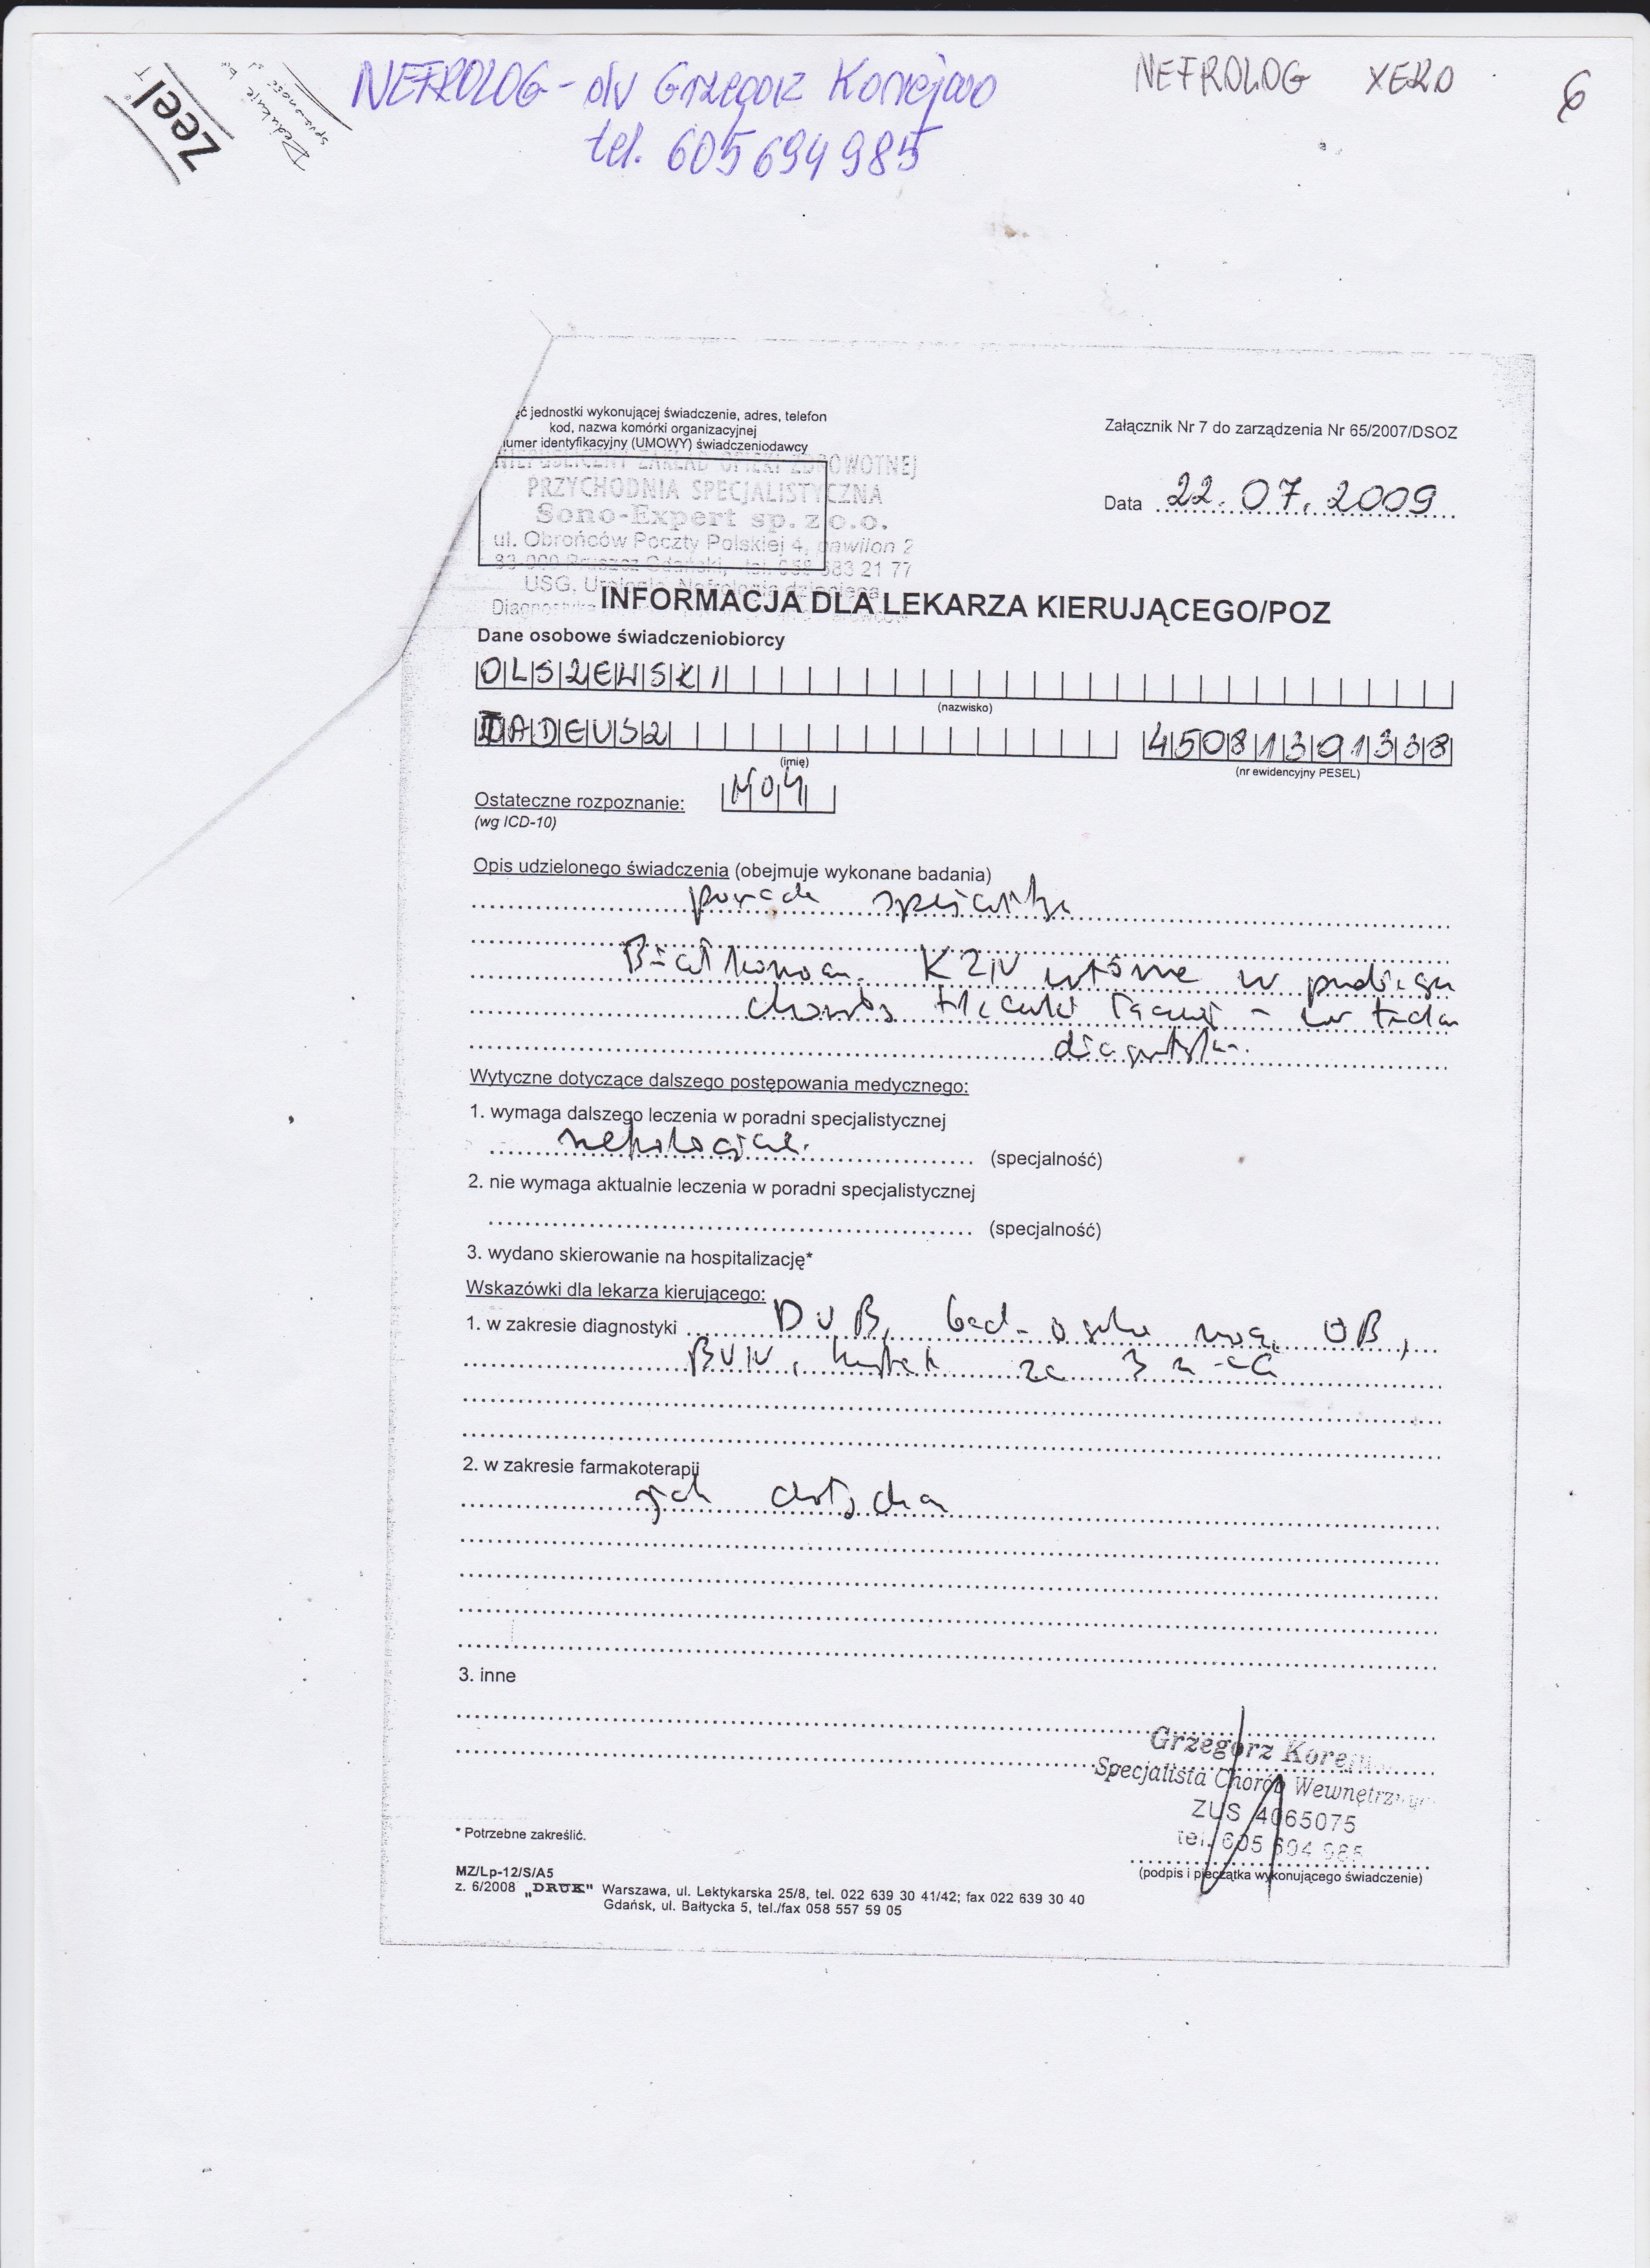 Zeel T
NEFROLOG - dr Grzegorz Korejwo
tel. 605 694 985
NEFROLOG XERO
6
ęć jednostki wykonującej świadczenie, adres, telefon
kod, nazwa komórki organizacyjnej
numer identyfikacyjny (UMOWY) świadczeniodawcy
NIEPUBLICZNY ZAKŁAD OPIEKI ZDROWOTNEJ
PRZYCHODNIA SPECJALISTYCZNA
Sono-Expert sp. z o.o.
ul. Obrońców Poczty Polskiej 4, pawilon 2
83-000 Pruszcz Gdański, tel. 058 683 21 77
USG, Urologia, Nefrologia dziecięca
Diagnostyka
Załącznik Nr 7 do zarządzenia Nr 65/2007/DSOZ
Data 22.07.2009
INFORMACJA DLA LEKARZA KIERUJĄCEGO/POZ
Dane osobowe świadczeniobiorcy
OLSZEWSKI
(nazwisko)
TADEUSZ 45081301338
(imię) (nr ewidencyjny PESEL)
Ostateczne rozpoznanie: N04
(wg ICD-10)
Opis udzielonego świadczenia (obejmuje wykonane badania)
porada
Białkomocz. KZN wtórne w przebiegu
choroby tkanki łącznej - w trakcie
diagnostyki.
Wytyczne dotyczące dalszego postępowania medycznego:
1. wymaga dalszego leczenia w poradni specjalistycznej
nefrologiczne. (specjalność)
2. nie wymaga aktualnie leczenia w poradni specjalistycznej
(specjalność)
3. wydano skierowanie na hospitalizację*
Wskazówki dla lekarza kierującego:
1. w zakresie diagnostyki DUB, bad. ogólne moczu, OB,
kontrola za 3 m-ce
2. w zakresie farmakoterapii
jak dotychczas
3. inne
Grzegorz Korejwo
Specjalista Chorób Wewnętrznych
ZUS 4065075
tel. 605 694 985
(podpis i pieczątka wykonującego świadczenie)
* Potrzebne zakreślić.
MZ/Lp-12/S/A5
z. 6/2008 „DRUK" Warszawa, ul. Lektykarska 25/8, tel. 022 639 30 41/42; fax 022 639 30 40
Gdańsk, ul. Bałtycka 5, tel./fax 058 557 59 05